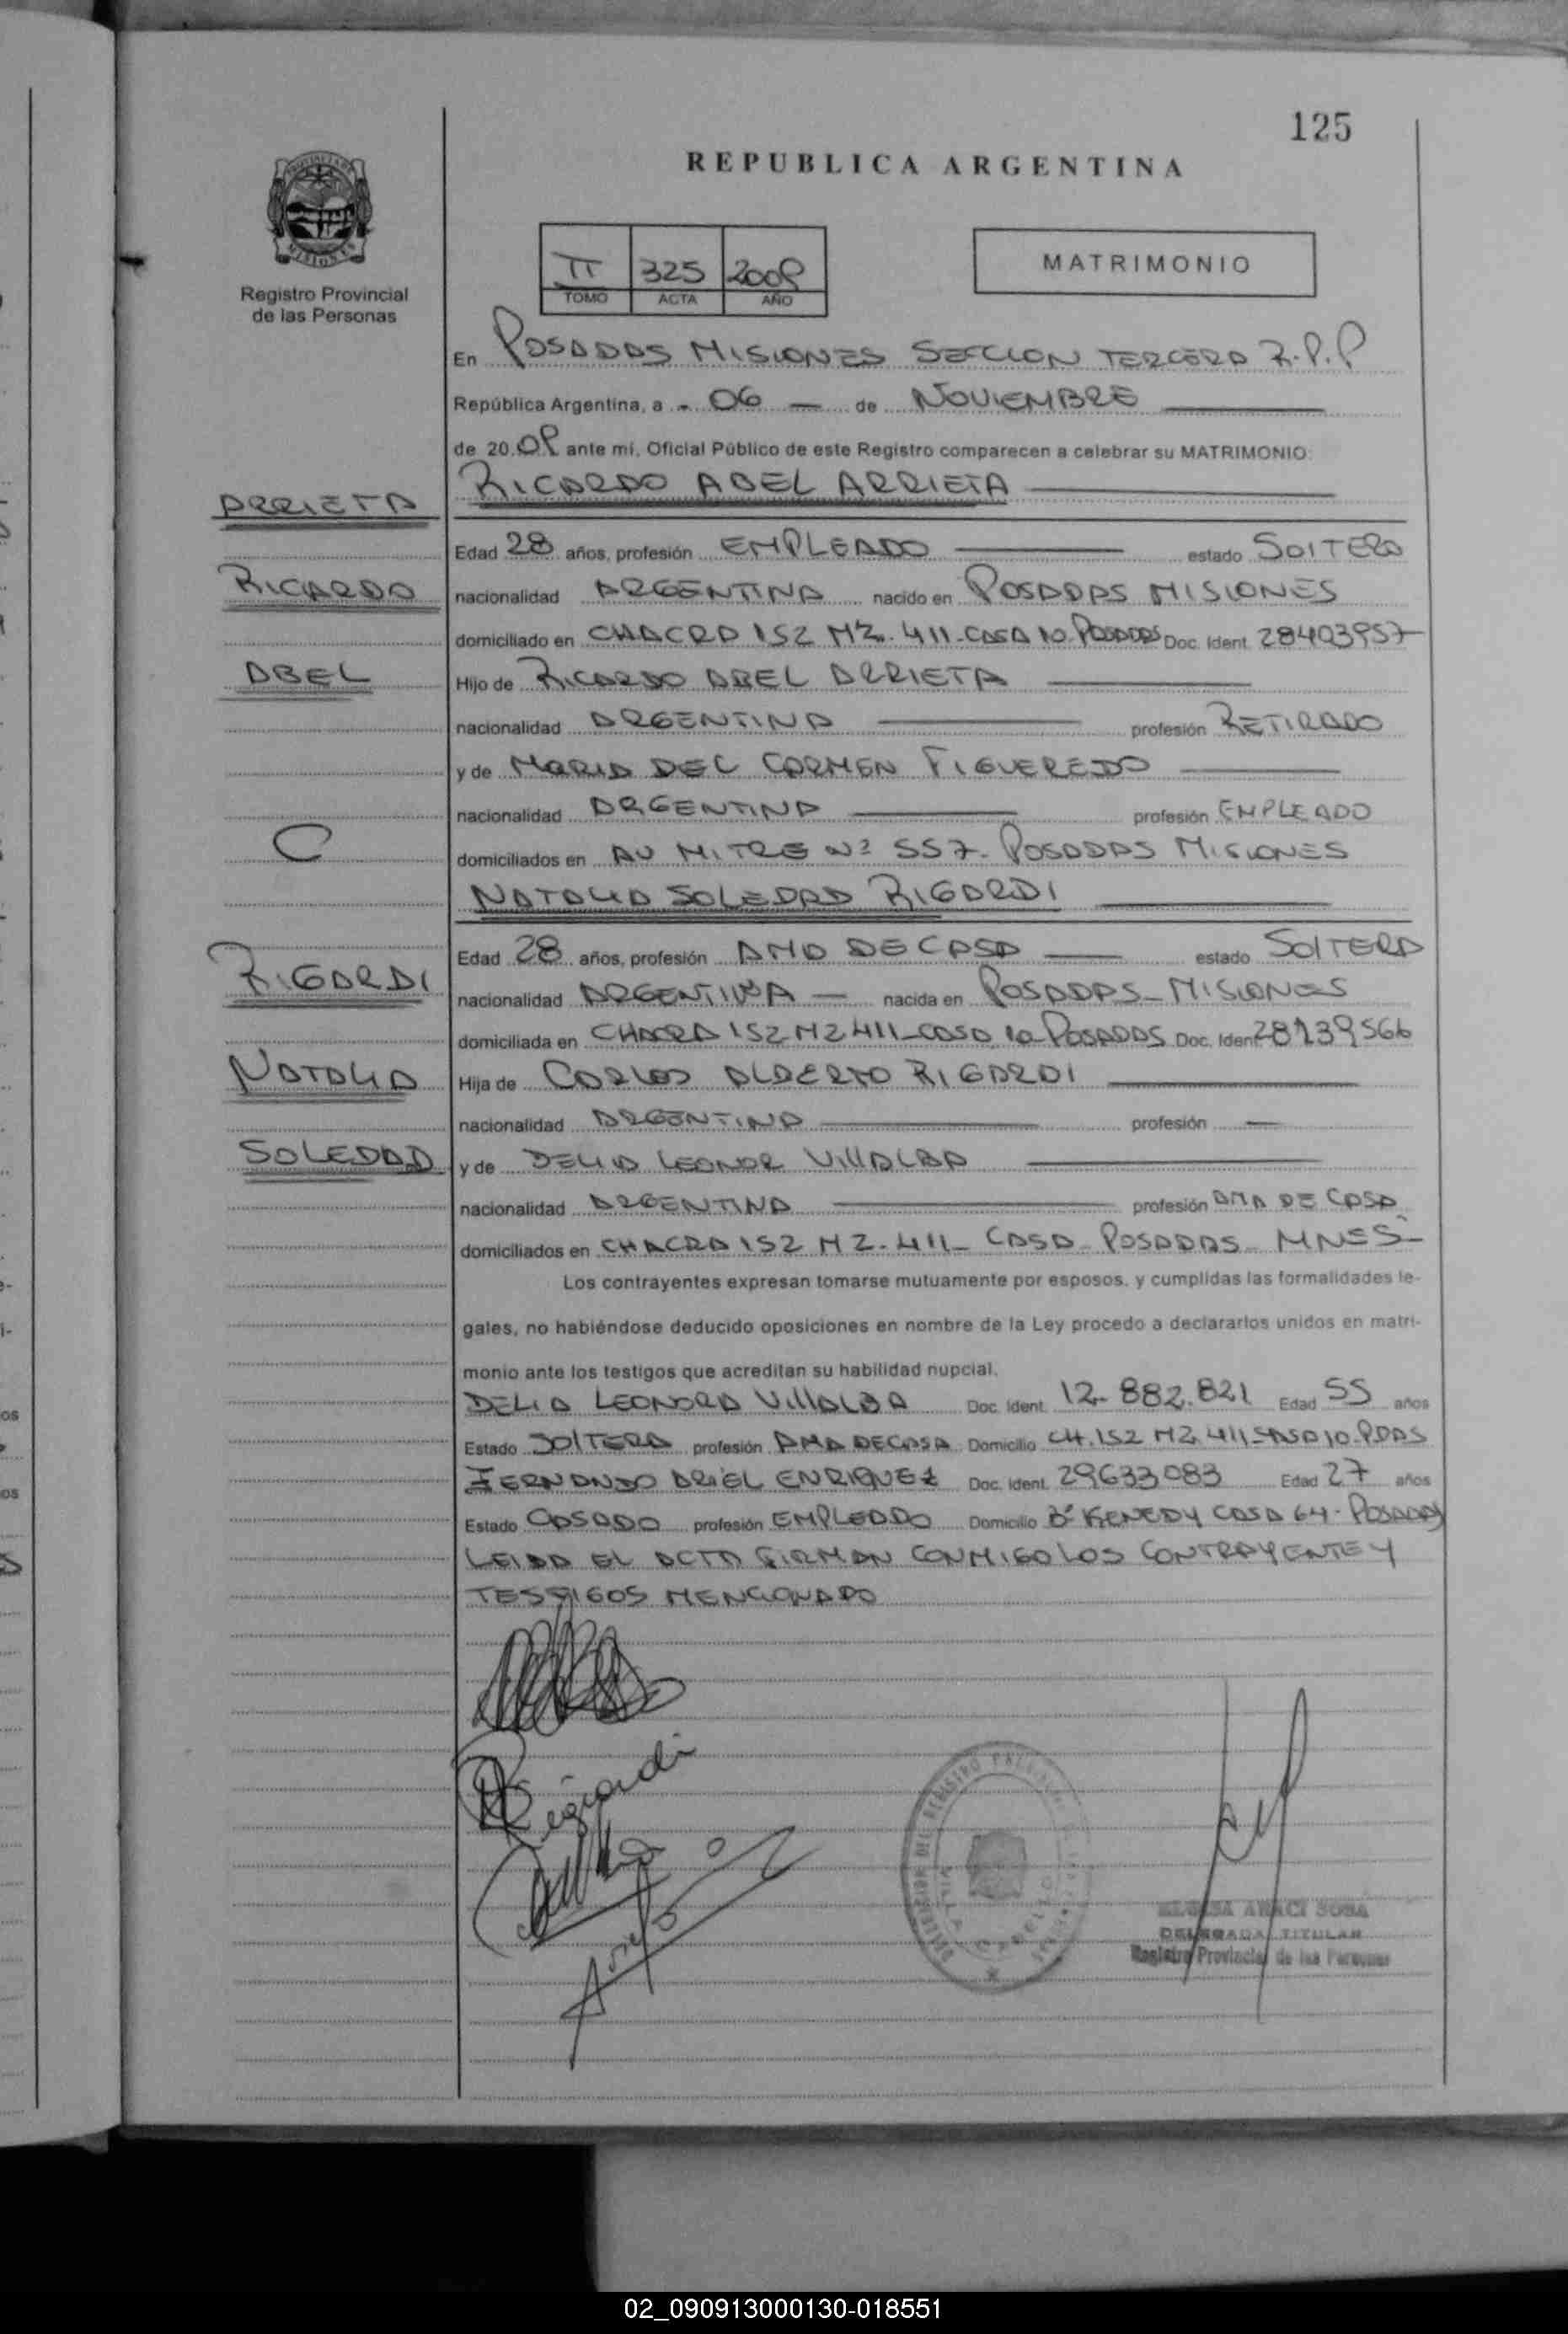 125
REPUBLICA ARGENTINA
PROVINCIA DE
MISIONES
Registro Provincial
de las Personas
II 325 2008
TOMO ACTA AÑO
MATRIMONIO
En POSADAS MISIONES SECCION TERCERA R.P.P
República Argentina, a - 06 — de NOVIEMBRE
de 2008 ante mí, Oficial Público de este Registro comparecen a celebrar su MATRIMONIO:
RICARDO ABEL ARRIETA
ARRIETA
Edad 28 años, profesión EMPLEADO estado SOLTERO
RICARDO
nacionalidad ARGENTINA nacido en POSADAS MISIONES
domiciliado en CHACRA 152 MZ. 411-CASA 10-POSADAS Doc. Ident. 28403957
ABEL
Hijo de RICARDO ABEL ARRIETA
nacionalidad ARGENTINA profesión RETIRADO
y de MARIA DEL CARMEN FIGUEREDO
nacionalidad ARGENTINA profesión EMPLEADO
C
domiciliados en AV MITRE Nº 557- POSADAS MISIONES
NATALIA SOLEDAD RIGARDI
Edad 28 años, profesión AMA DE CASA estado SOLTERA
RIGARDI
nacionalidad ARGENTINA — nacida en POSADAS - MISIONES
domiciliada en CHACRA 152 MZ 411-CASA 10-POSADAS Doc. Iden
NATALIA
Hija de CARLOS ALBERTO RIGARDI
nacionalidad ARGENTINA profesión —
SOLEDAD
y de DELIA LEONOR VILLALBA
nacionalidad ARGENTINA profesión AMA DE CASA
domiciliados en CHACRA 152 MZ-411- CASA- POSADAS- MNES-
Los contrayentes expresan tomarse mutuamente por esposos, y cumplidas las formalidades le-
gales, no habiéndose deducido oposiciones en nombre de la Ley procedo a declararlos unidos en matri-
monio ante los testigos que acreditan su habilidad nupcial.
DELIA LEONORA VILLALBA Doc. Ident. 12-882.821 Edad 55 años
Estado SOLTERA profesión AMA DECASA Domicilio CH.152 MZ 411-CASA10-PDAS
FERNANDO ARIEL ENRIQUEZ Doc. Ident. 29633083 Edad 27 años
Estado CASADO profesión EMPLEADO Domicilio Bº KENEDY CASA 64- POSADAS
LEIDA EL ACTA FIRMAN CONMIGO LOS CONTRAYENTE Y
TESTIGOS MENCIONADO
Rigardi
ARACI SOSA
DELEGADA TITULAR
Registro Provincial de las Personas
02_090913000130-018551